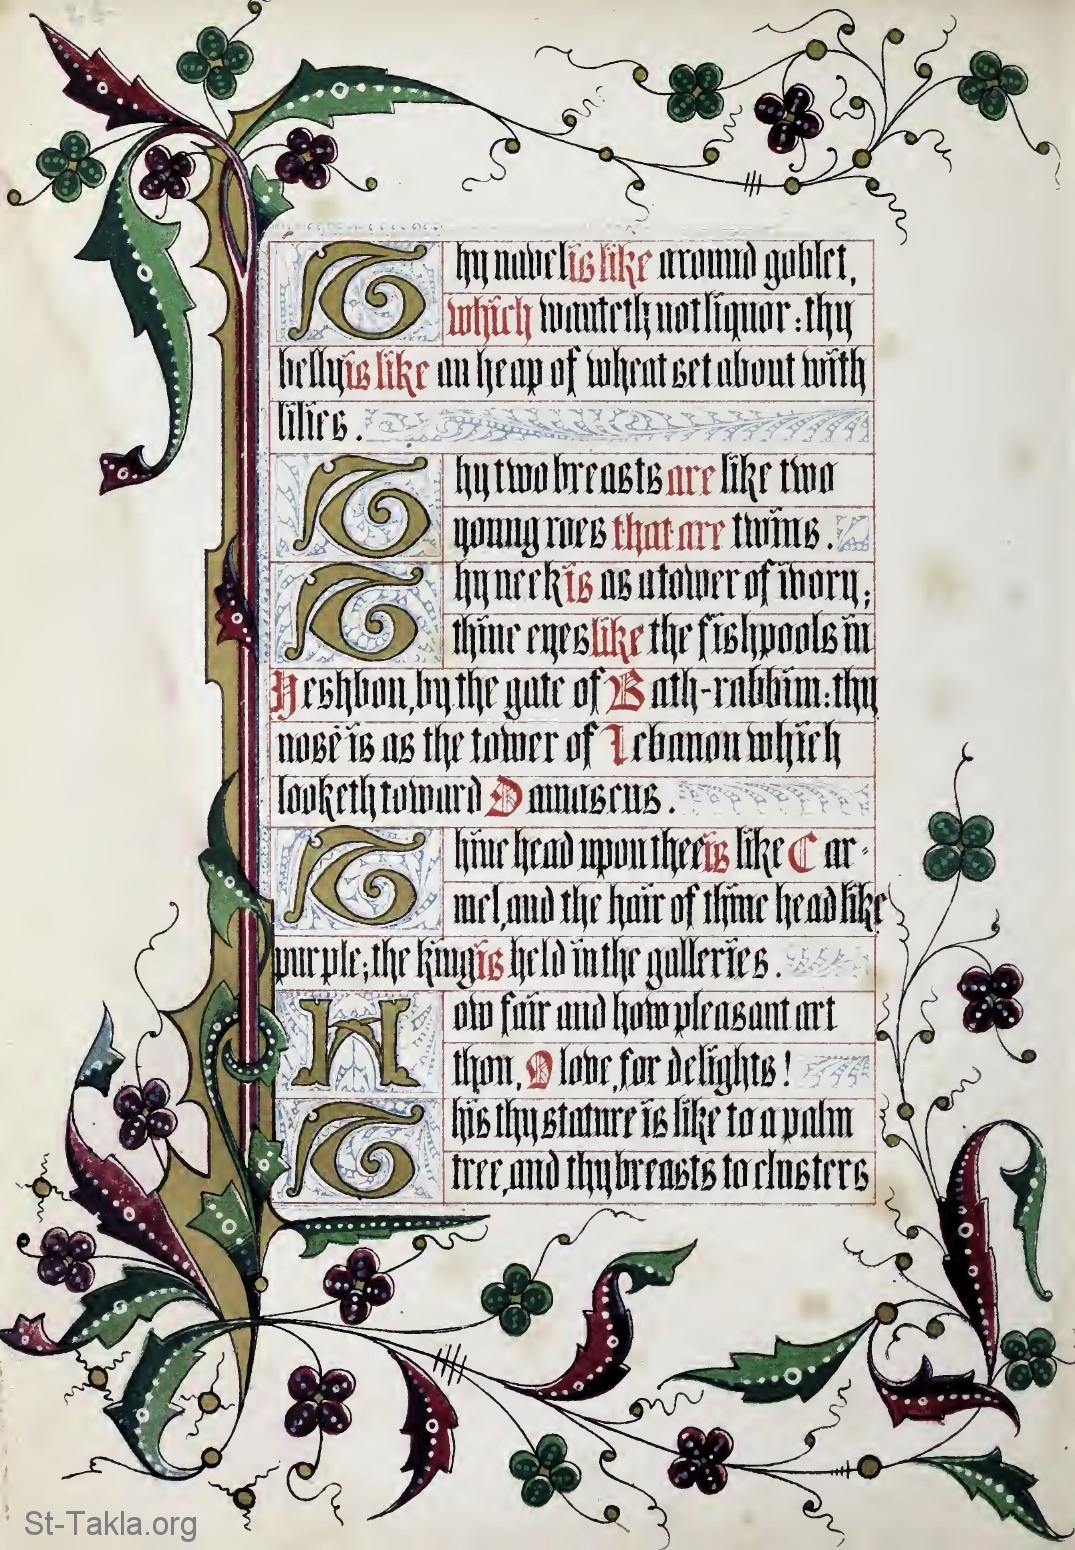 Thy navel is like around goblet,
which wanteth not liquor: thy
belly is like an heap of wheat set about with
lilies.
Thy two breasts are like two
young roes that are twins.
Thy neck is as a tower of ivory;
thine eyes like the fishpools in
Heshbon, by the gate of Bath-rabbim: thy
nose is as the tower of Lebanon which
looketh toward Damascus.
Thine head upon thee is like Car-
mel, and the hair of thine head like
purple; the king is held in the galleries.
How fair and how pleasant art
thou, O love, for delights!
This thy stature is like to a palm
tree, and thy breasts to clusters
St-Takla.org